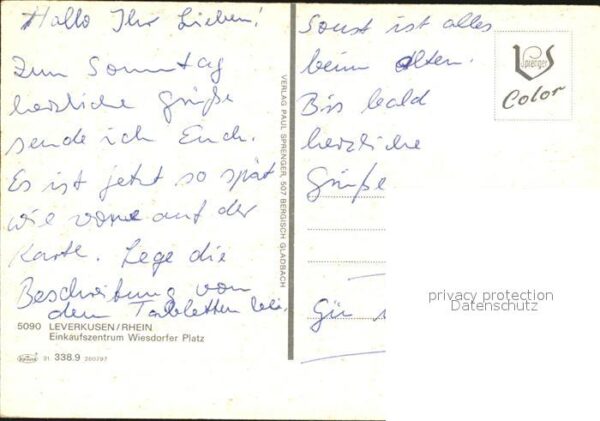 Hallo Ihr Lieben!
Zum Sonntag
herzliche Grüße
sende ich Euch.
Es ist jetzt so spät
wie vorne auf der
Karte. Lege die
Beschreibung von
den Tabletten bei.
5090 LEVERKUSEN/RHEIN
Einkaufszentrum Wiesdorfer Platz
31 338.9 260797
VERLAG PAUL SPRENGER, 507 BERGISCH GLADBACH
Sonst ist alles
beim Alten.
Bis bald
herzliche
Grüße
Sprenger
Color
privacy protection
Datenschutz